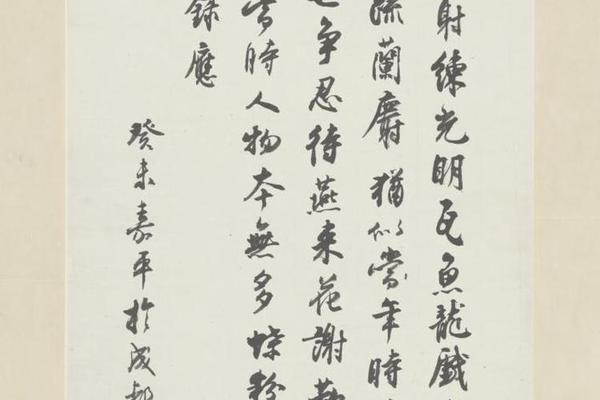 射練光明瓦魚龍戲
疏蘭麝猶似當年時
争忍待燕来花謝
時人物本無多蝶粉
錄應
癸未嘉平於成都